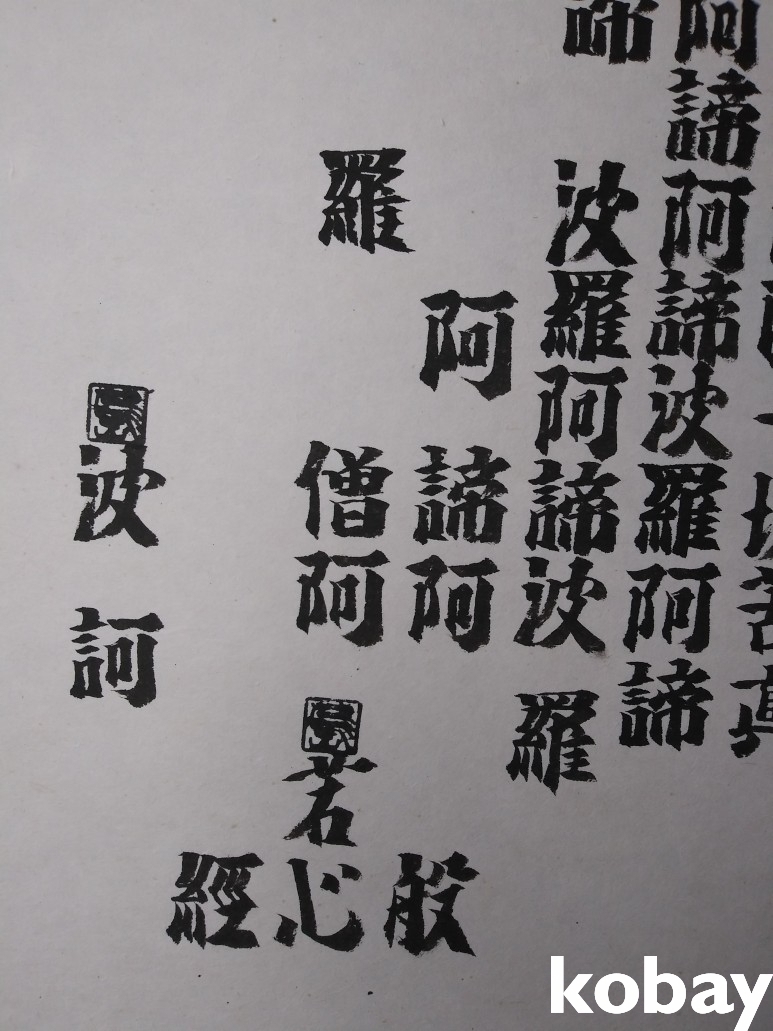 一切苦真
阿諦阿諦波羅阿諦
諦波羅阿諦波羅
阿諦阿
羅僧阿
般若心經
波訶
kobay